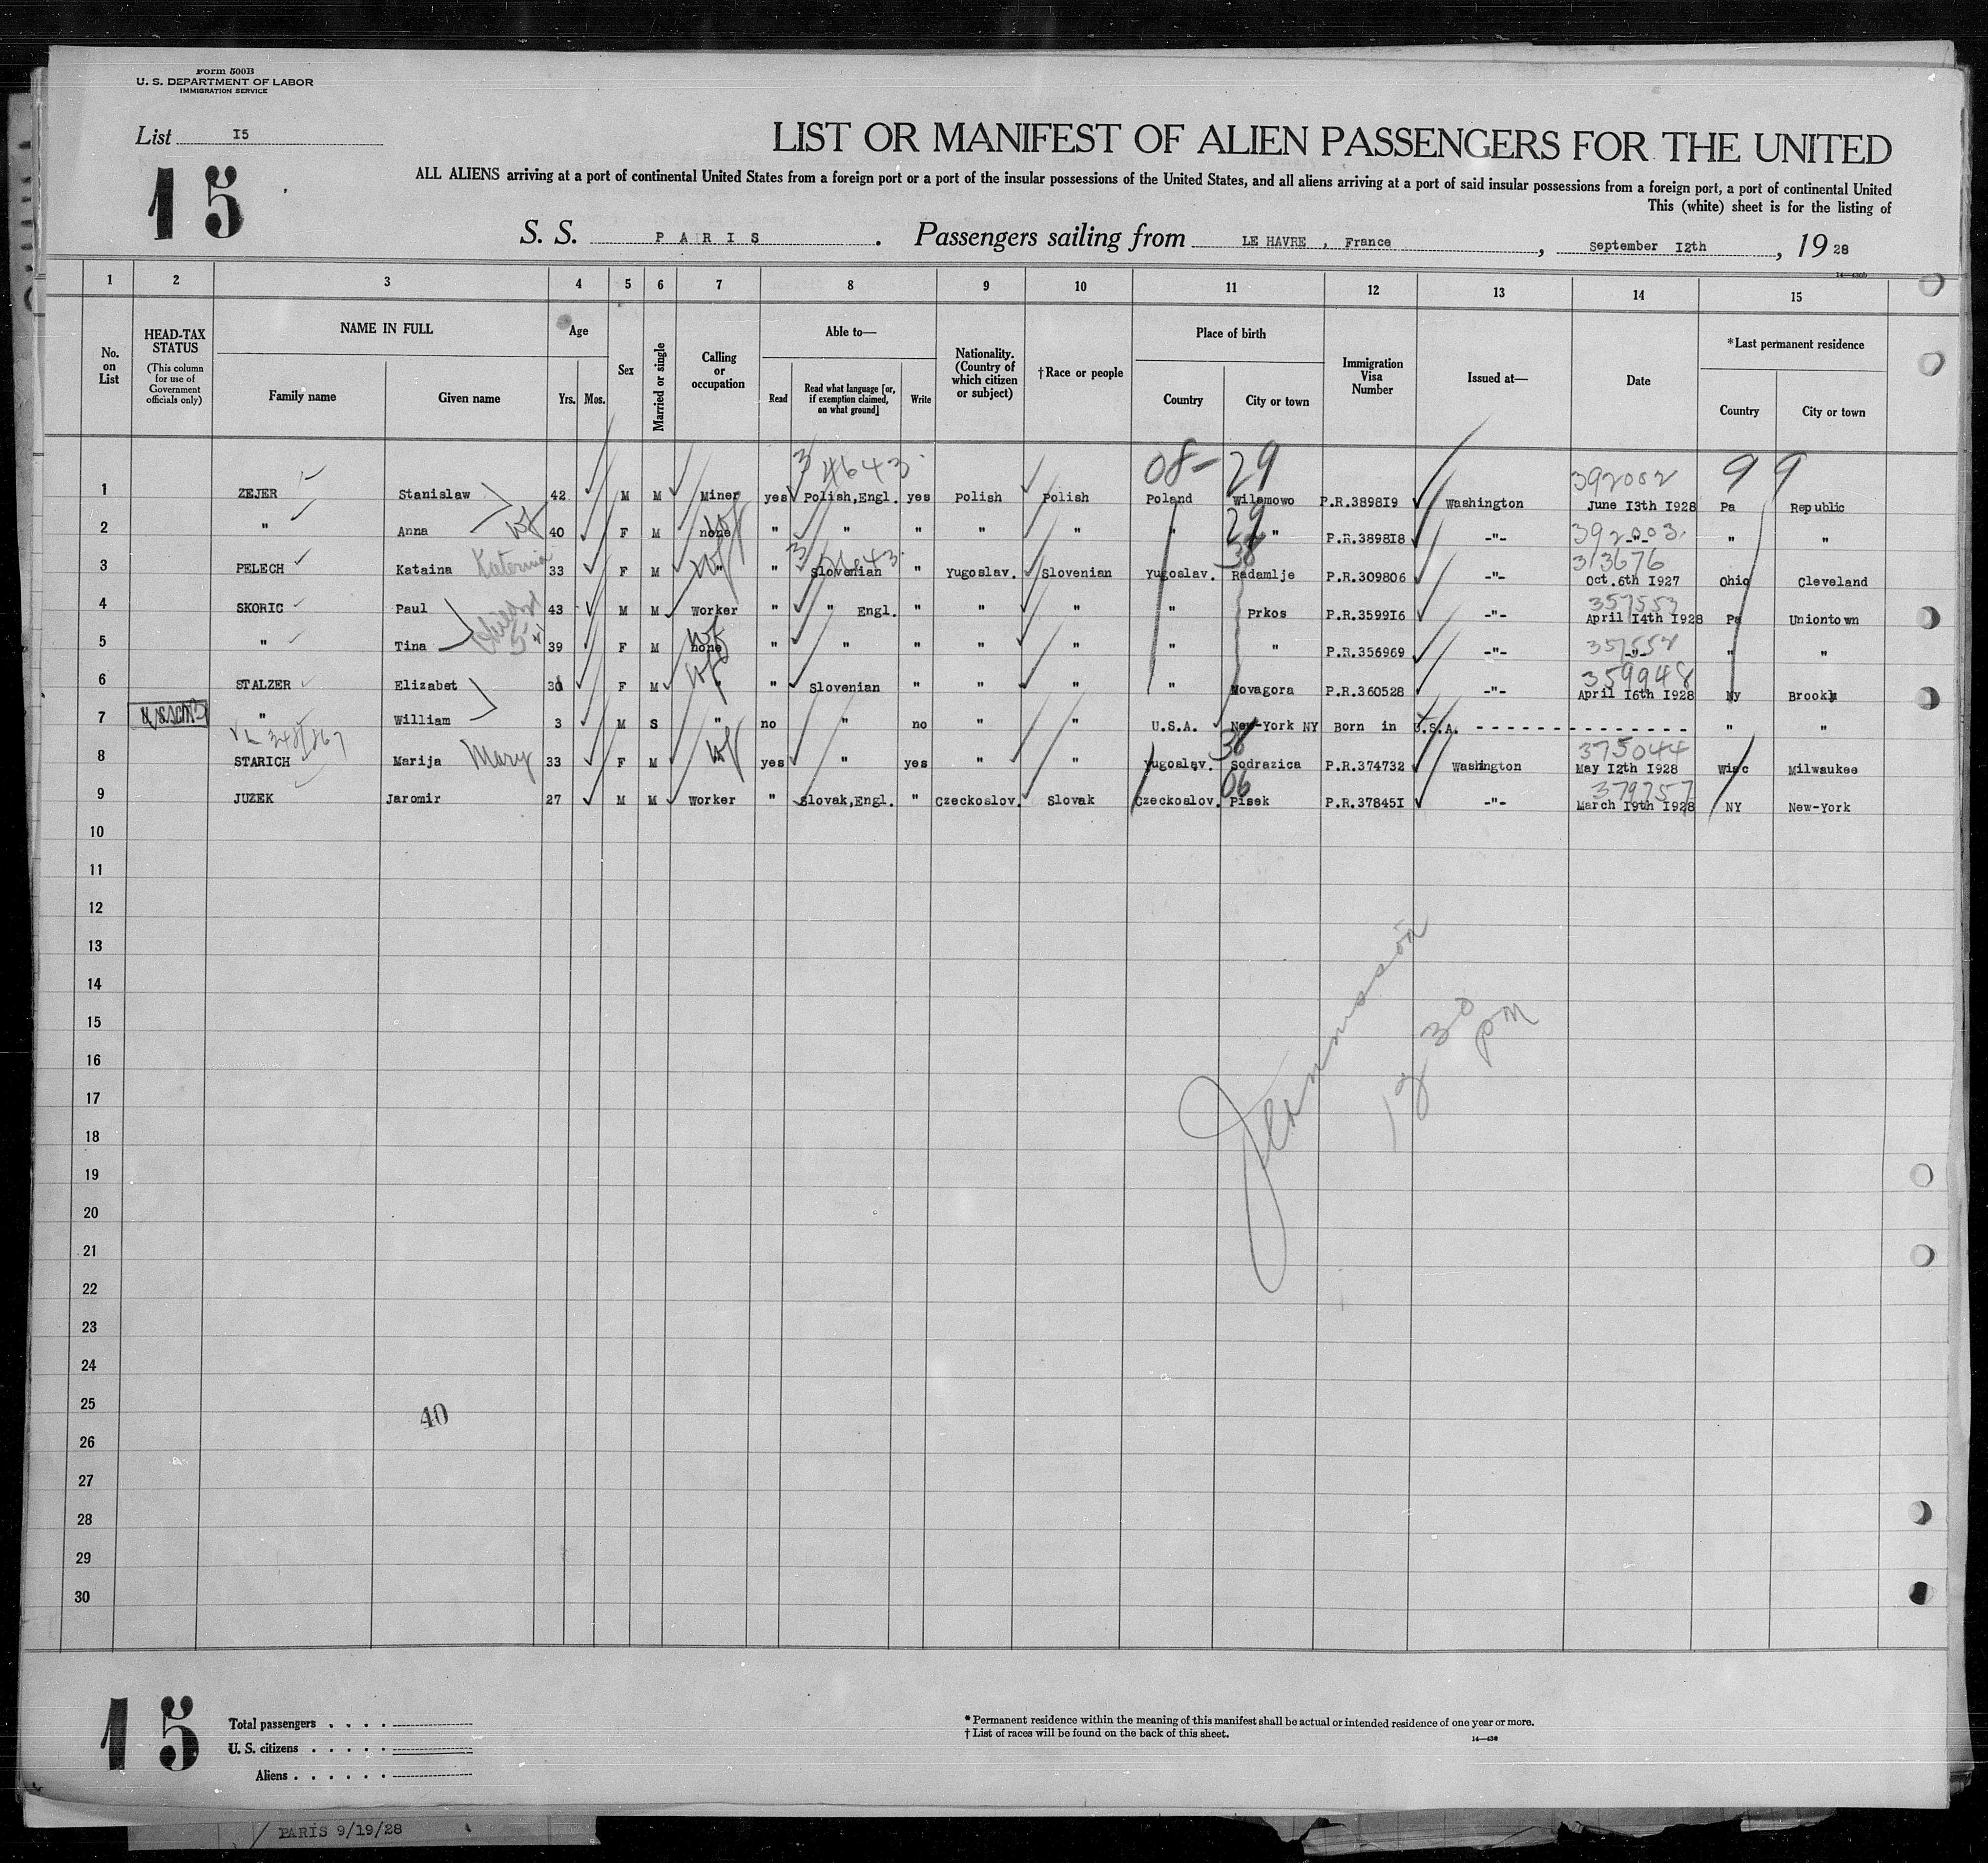 Form 500B
U. S. DEPARTMENT OF LABOR
IMMIGRATION SERVICE
List I5
15
LIST OR MANIFEST OF ALIEN PASSENGERS FOR THE UNITED
ALL ALIENS arriving at a port of continental United States from a foreign port or a port of the insular possessions of the United States, and all aliens arriving at a port of said insular possessions from a foreign port, a port of continental United
This (white) sheet is for the listing of
S. S. PARIS. Passengers sailing from LE HAVRE , France, September I2th, 19 28
14—430b
1 2 3 4 5 6 7 8 9 10 11 12 13 14 15
No. on List
HEAD-TAX STATUS (This column for use of Government officials only)
NAME IN FULL
Family name Given name
Age
Yrs. Mos.
Sex
Married or single
Calling or occupation
Able to—
Read Read what language [or, if exemption claimed, on what ground] Write
Nationality. (Country of which citizen or subject)
†Race or people
Place of birth
Country City or town
Immigration Visa Number
Issued at—
Date
*Last permanent residence
Country City or town
3 4643 08- 29 392002 99
1 ZEJER Stanislaw 42 M M Miner yes Polish,Engl. yes Polish Polish Poland Wilamowo P.R.3898I9 Washington June I3th I928 Pa Republic
wf wf 29 392003
2 " Anna 40 F M none " " " " " " " P.R.3898I8 -"- -"- " "
Katerina wf 3 38 313676
3 PELECH Kataina 33 F M " " Slovenian " Yugoslav. Slovenian Yugoslav. Radamlje P.R.309806 -"- Oct.6th I927 Ohio Cleveland
357553
4 SKORIC Paul 43 M M Worker " " Engl. " " " " Prkos P.R.3599I6 -"- April I4th I928 Pa Uniontown
wf
5 " Tina 39 F M none " " " " " " " P.R.356969 -"- -"- " "
wf 359948
6 STALZER Elizabet 30 F M " " Slovenian " " " " Novagora P.R.360528 -"- April I6th I928 Ny Brookly
7 " William 3 M S " no " no " " U.S.A. New-York NY Born in U.S.A. - - - - - - - - - - - - - - " "
Mary wf 38 375044
8 STARICH Marija 33 F M " yes " yes " " Yugoslav. Sodrazica P.R.374732 Washington May I2th I928 Wisc Milwaukee
06 379757
9 JUZEK Jaromir 27 M M Worker " Slovak,Engl. " Czeckoslov. Slovak Czeckoslov. Pisek P.R.37845I -"- March I9th I928 NY New-York
10
11
12
13
14
15
16
17
18
19
20
21
22
23
24
25
26
27
28
29
30
12 30 pm
40
15
Total passengers . . . .
U. S. citizens . . . . .
Aliens . . . . . .
* Permanent residence within the meaning of this manifest shall be actual or intended residence of one year or more.
† List of races will be found on the back of this sheet.
14—430
PARIS 9/19/28